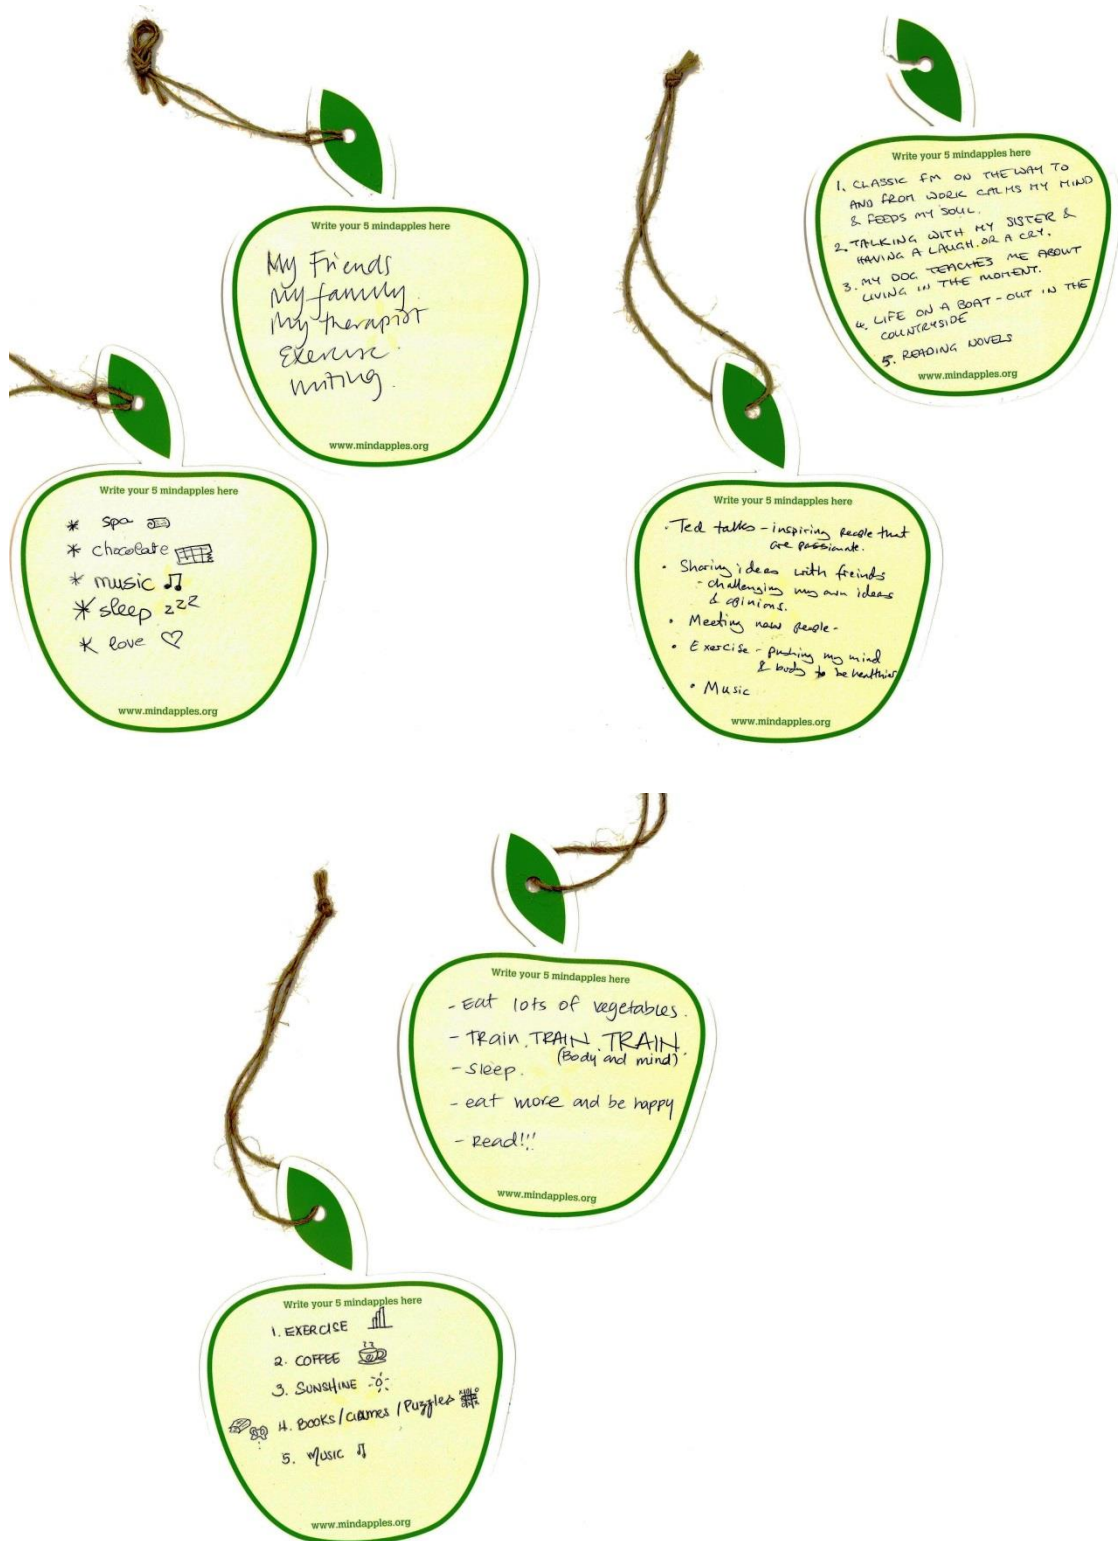 Write your 5 mindapples here
My Friends
My family
My therapist
Exercise
Writing.
www.mindapples.org
Write your 5 mindapples here
1. CLASSIC FM ON THE WAY TO
AND FROM WORK CALMS MY MIND
& FEEDS MY SOUL.
2. TALKING WITH MY SISTER &
HAVING A LAUGH. OR A CRY.
3. MY DOG TEACHES ME ABOUT
LIVING IN THE MOMENT.
4. LIFE ON A BOAT - OUT IN THE
COUNTRYSIDE
5. READING NOVELS
www.mindapples.org
Write your 5 mindapples here
* spa
* chocolate
* music
* sleep zzz
* love
www.mindapples.org
Write your 5 mindapples here
• Ted talks - inspiring people that
are passionate.
• Sharing ideas with freinds
- challenging my own ideas
& opinions.
• Meeting new people -
• Exercise - pushing my mind
& body to be healthier
• Music
www.mindapples.org
Write your 5 mindapples here
- Eat lots of vegetables.
- TRain. TRAIN. TRAIN.
(Body and mind)
- Sleep.
- eat more and be happy
- Read!!!
www.mindapples.org
Write your 5 mindapples here
1. EXERCISE
2. COFFEE
3. SUNSHINE
4. BOOKS/GAMES/PUZZLES
5. MUSIC
www.mindapples.org